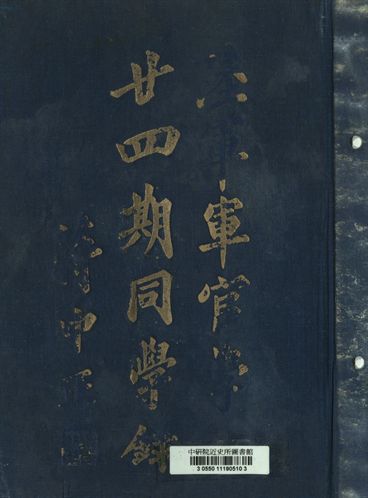 陸軍軍官學
廿四期同學錄
蔣中正
中研院近史所圖書館
3 0550 11190510 3